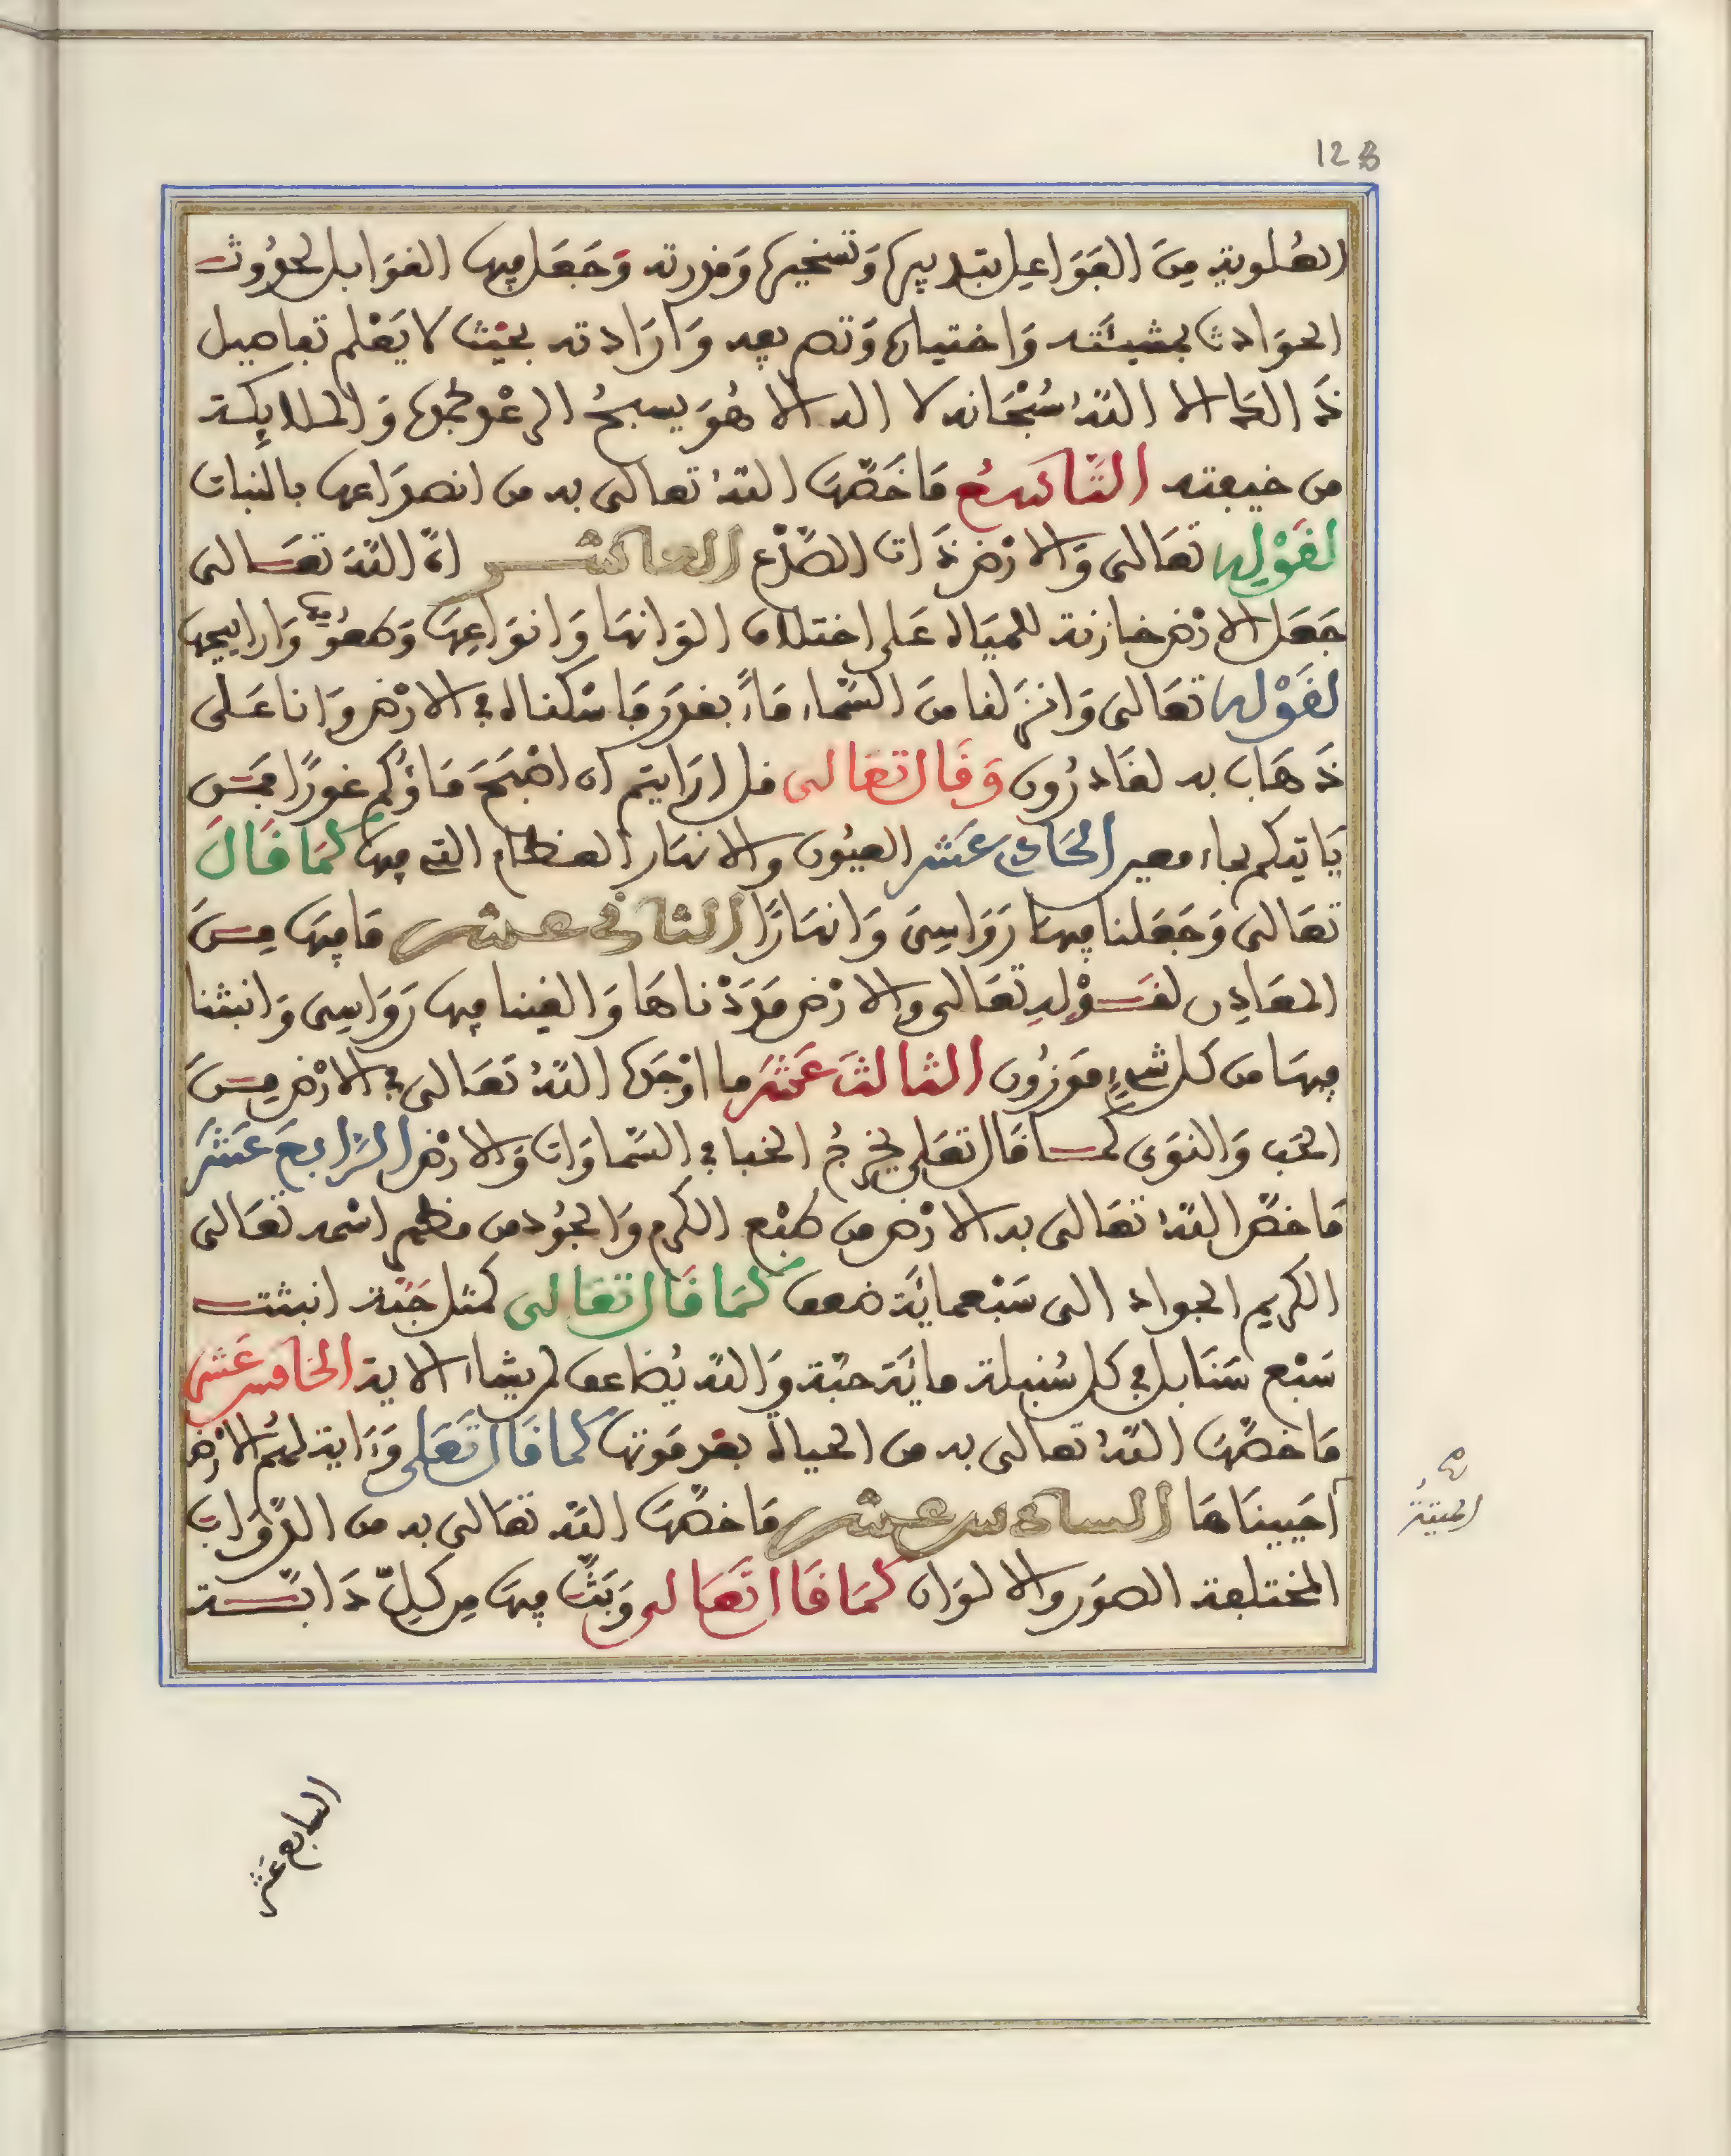 123
العلوية مِنَ الفَوَاعِل بتدبيره وَتسخيره وَقدرته وَجَعَل فيها القوَابل لحدُوث
الحوَادث بمشيئته وَاختياره وَتصريفه وَارَادته بحَيْث لا يَعْلم تفاصيل
ذَالك الا اللهُ سُبْحَانه لا اله الا هُوَ يسبحُ الرعْد بحمده وَالملايِكـة
من خيفته التَّاسِعُ مَا خَصَّهَا اللهُ تعالى به من انصدَاعها بالنبات
لقَوْلِه تعَالى وَالارْض ذَات الصَّدْع العاشـر انّ اللهَ تعَـالى
جَعَل الارْض خازنة للميَاه عَلى اختلاف الوَانهَا وَانوَاعِهَا وَطعُومها وَارايحِها
لقَوْله تعَالى وَانزَلنا منَ السَّمَاء مَاءً بقدَر فَاسْكناه في الارْض وَانا عَلى
ذَهَاب به لقَادرُون وَقَال تعَالى قل ارَايتم ان اصْبَحَ مَاؤُكم غورًا فمَـن
يَاتيكم بماء معين الحَادي عَشر العيُون والانهَار العـظام التي فيها كمَا قَالَ
تعَالى وَجَعَلنا فيهَا رَوَاسِيَ وَانهَارًا الثاني عشر مَا فِيهَا مِـنَ
المعَادِن لقَـوْلِهِ تعَالى والارْض مَدَدْناهَا وَالقينا فيها رَوَاسِي وَانبتنا
فِيهَا من كل شيءٍ موزُون الثالثَ عَشَر ما اوْجَدَه اللهُ تعَالى في الارْض مِـنَ
الحَب وَالنوَى كمـا قَال تعَلى يخرجُ الخبا في السَّمَاوَات وَالارْض الرَّابعَ عَشَر
مَا خصَّ اللهُ تعَالى به الارْض من طبْع الكرم وَالجُود من مظهر اسْمه تعَالى
الكريم الجواد الى سَبْعمائَة ضعف كمَا قَال تعَالى كمثل حَبّة انبتت
سَبْع سَنَابل في كل سُنبلة مائَة حبّة وَالله يُضاعف لمن يشاء الاية الخامس عَشر
مَا خصَّهَا اللهُ تعالى به من الحياة بعْد مَوتهَا كمَا قَال تَعَلى وَءَاية لهُمُ الارْض
الميتةُ
احَيينَاهَا السادس عشر مَا خصَّهَا الله تعَالى به من الدَّوَاب
المختلفة الصوَر والالوَان كمَا قَال تعَالى وَبَثّ فيهَا مِن كلِّ دَابّـة
السابع عَشر